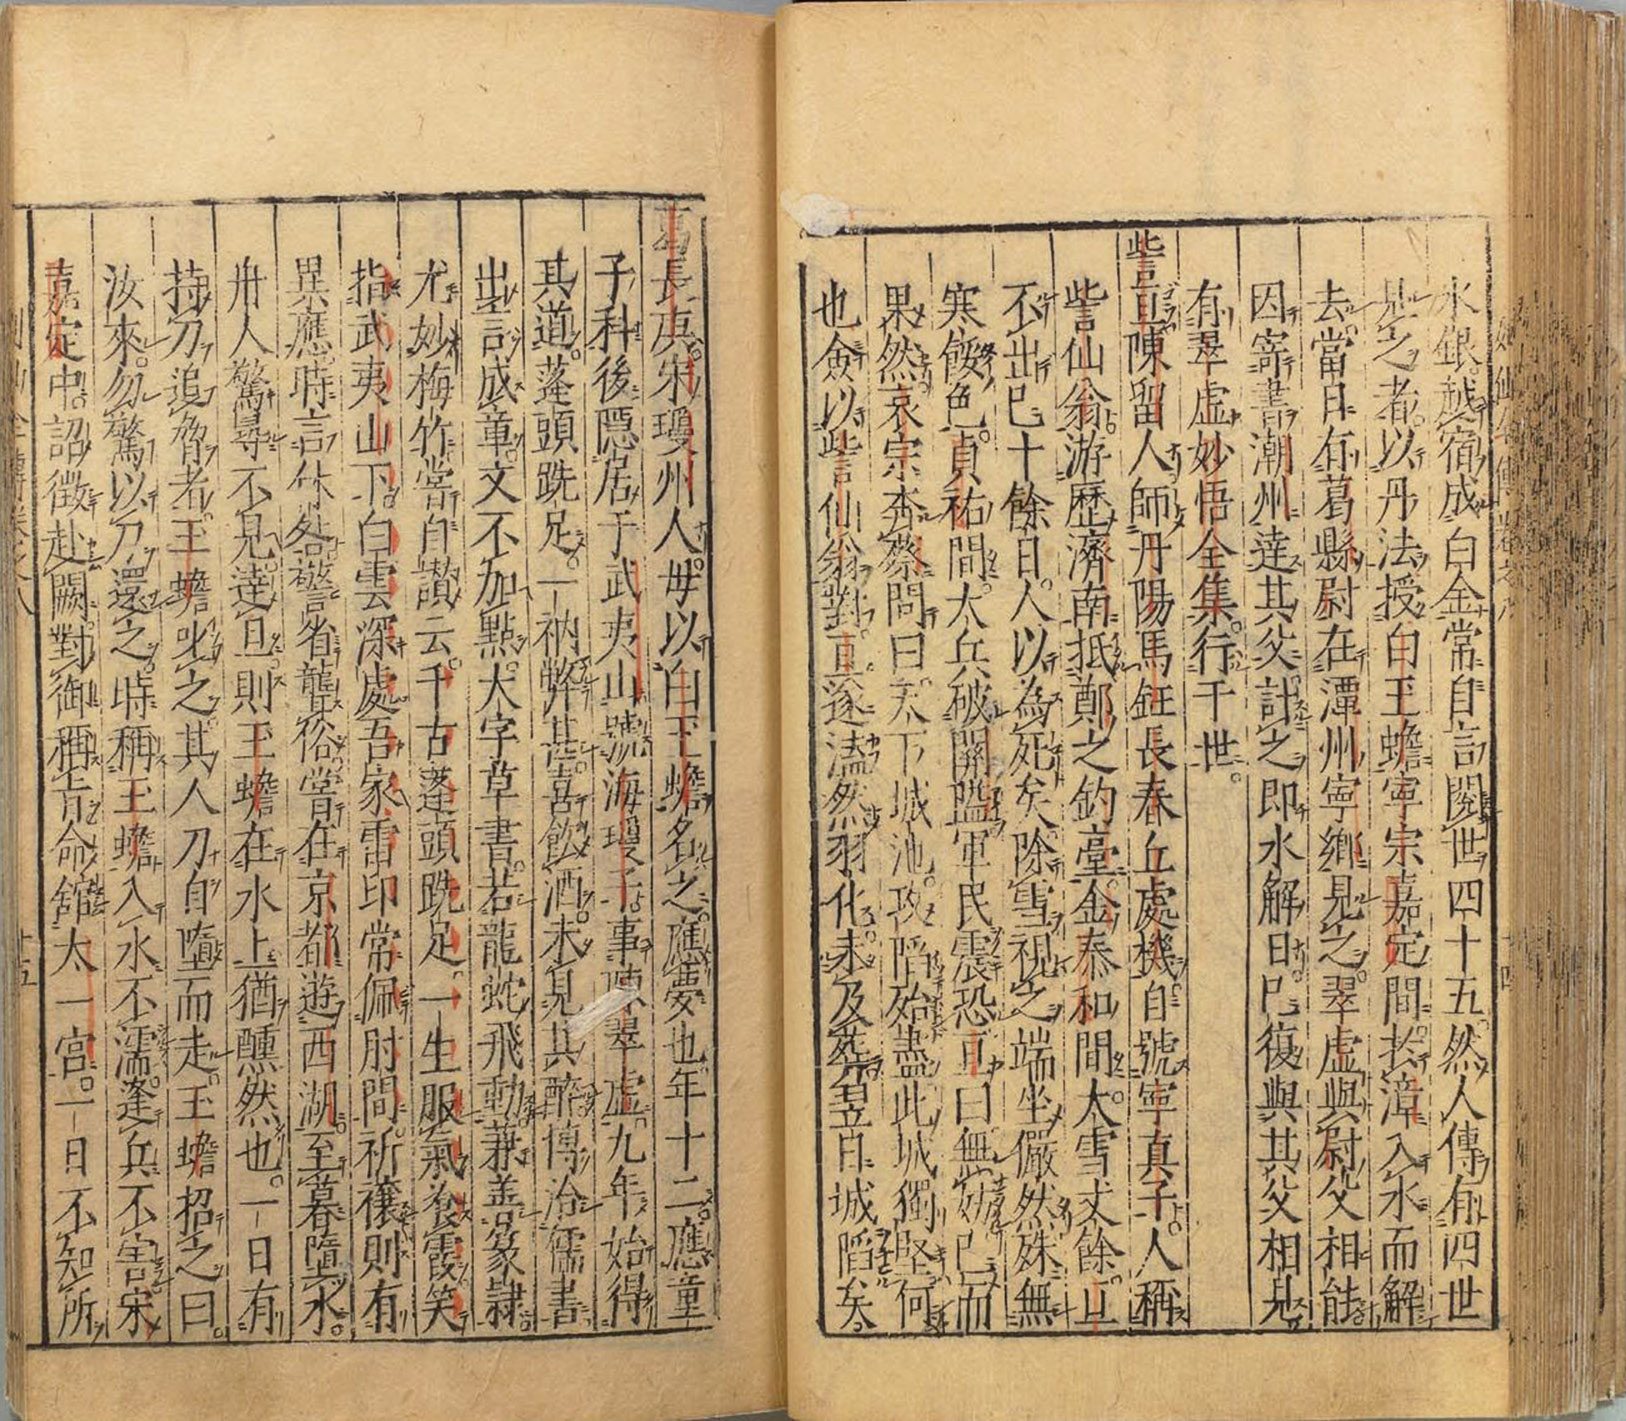 水銀越宿成白金常自言閱世四十五然人傳有四世
見之者以丹法授白玉蟾寧宗嘉定間於漳入水而解
去當日有葛縣尉在潭州寧鄉見之翠虛與尉父相能
因寄書潮州達其父計之即水解日已復與其父相見
有翠虛妙悟全集行于世
訾亘陳留人師丹陽馬鈺長春丘處機自號寧真子人稱
訾仙翁游歷濟南抵鄭之釣臺金泰和間大雪丈餘亘
不出已十餘日人以為死矣除雪視之端坐儼然殊無
寒餒色貞祐間大兵破關隘軍民震恐亘曰無妨已而
果然哀宗李蔡問曰天下城池攻陷殆盡此城獨堅何
也僉以訾仙翁對亘遂溘然羽化未及葬翌日城陷矣
葛長庚宋瓊州人母以白玉蟾名之應夢也年十二應童
子科後隱居于武夷山號海瓊子事陳翠虛九年始得
其道蓬頭跣足一衲弊甚喜飲酒未見其醉博洽儒書
出言成章文不加點大字草書若龍蛇飛動兼善篆隸
尤妙梅竹嘗自讚云千古蓬頭跣足一生服氣飡霞笑
指武夷山下白雲深處吾家雷印常佩肘間祈禳則有
異應時言休咎警省聾俗嘗在京都遊西湖至暮墮水
舟人驚尋不見達旦則玉蟾在水上猶醺然也一日有
持刀追脅者玉蟾叱之其人刀自墮而走玉蟾招之曰
汝來勿驚以刀還之時稱玉蟾入水不濡逢兵不害宋
嘉定中詔徵赴闕對御稱旨命館太一宮一日不知所